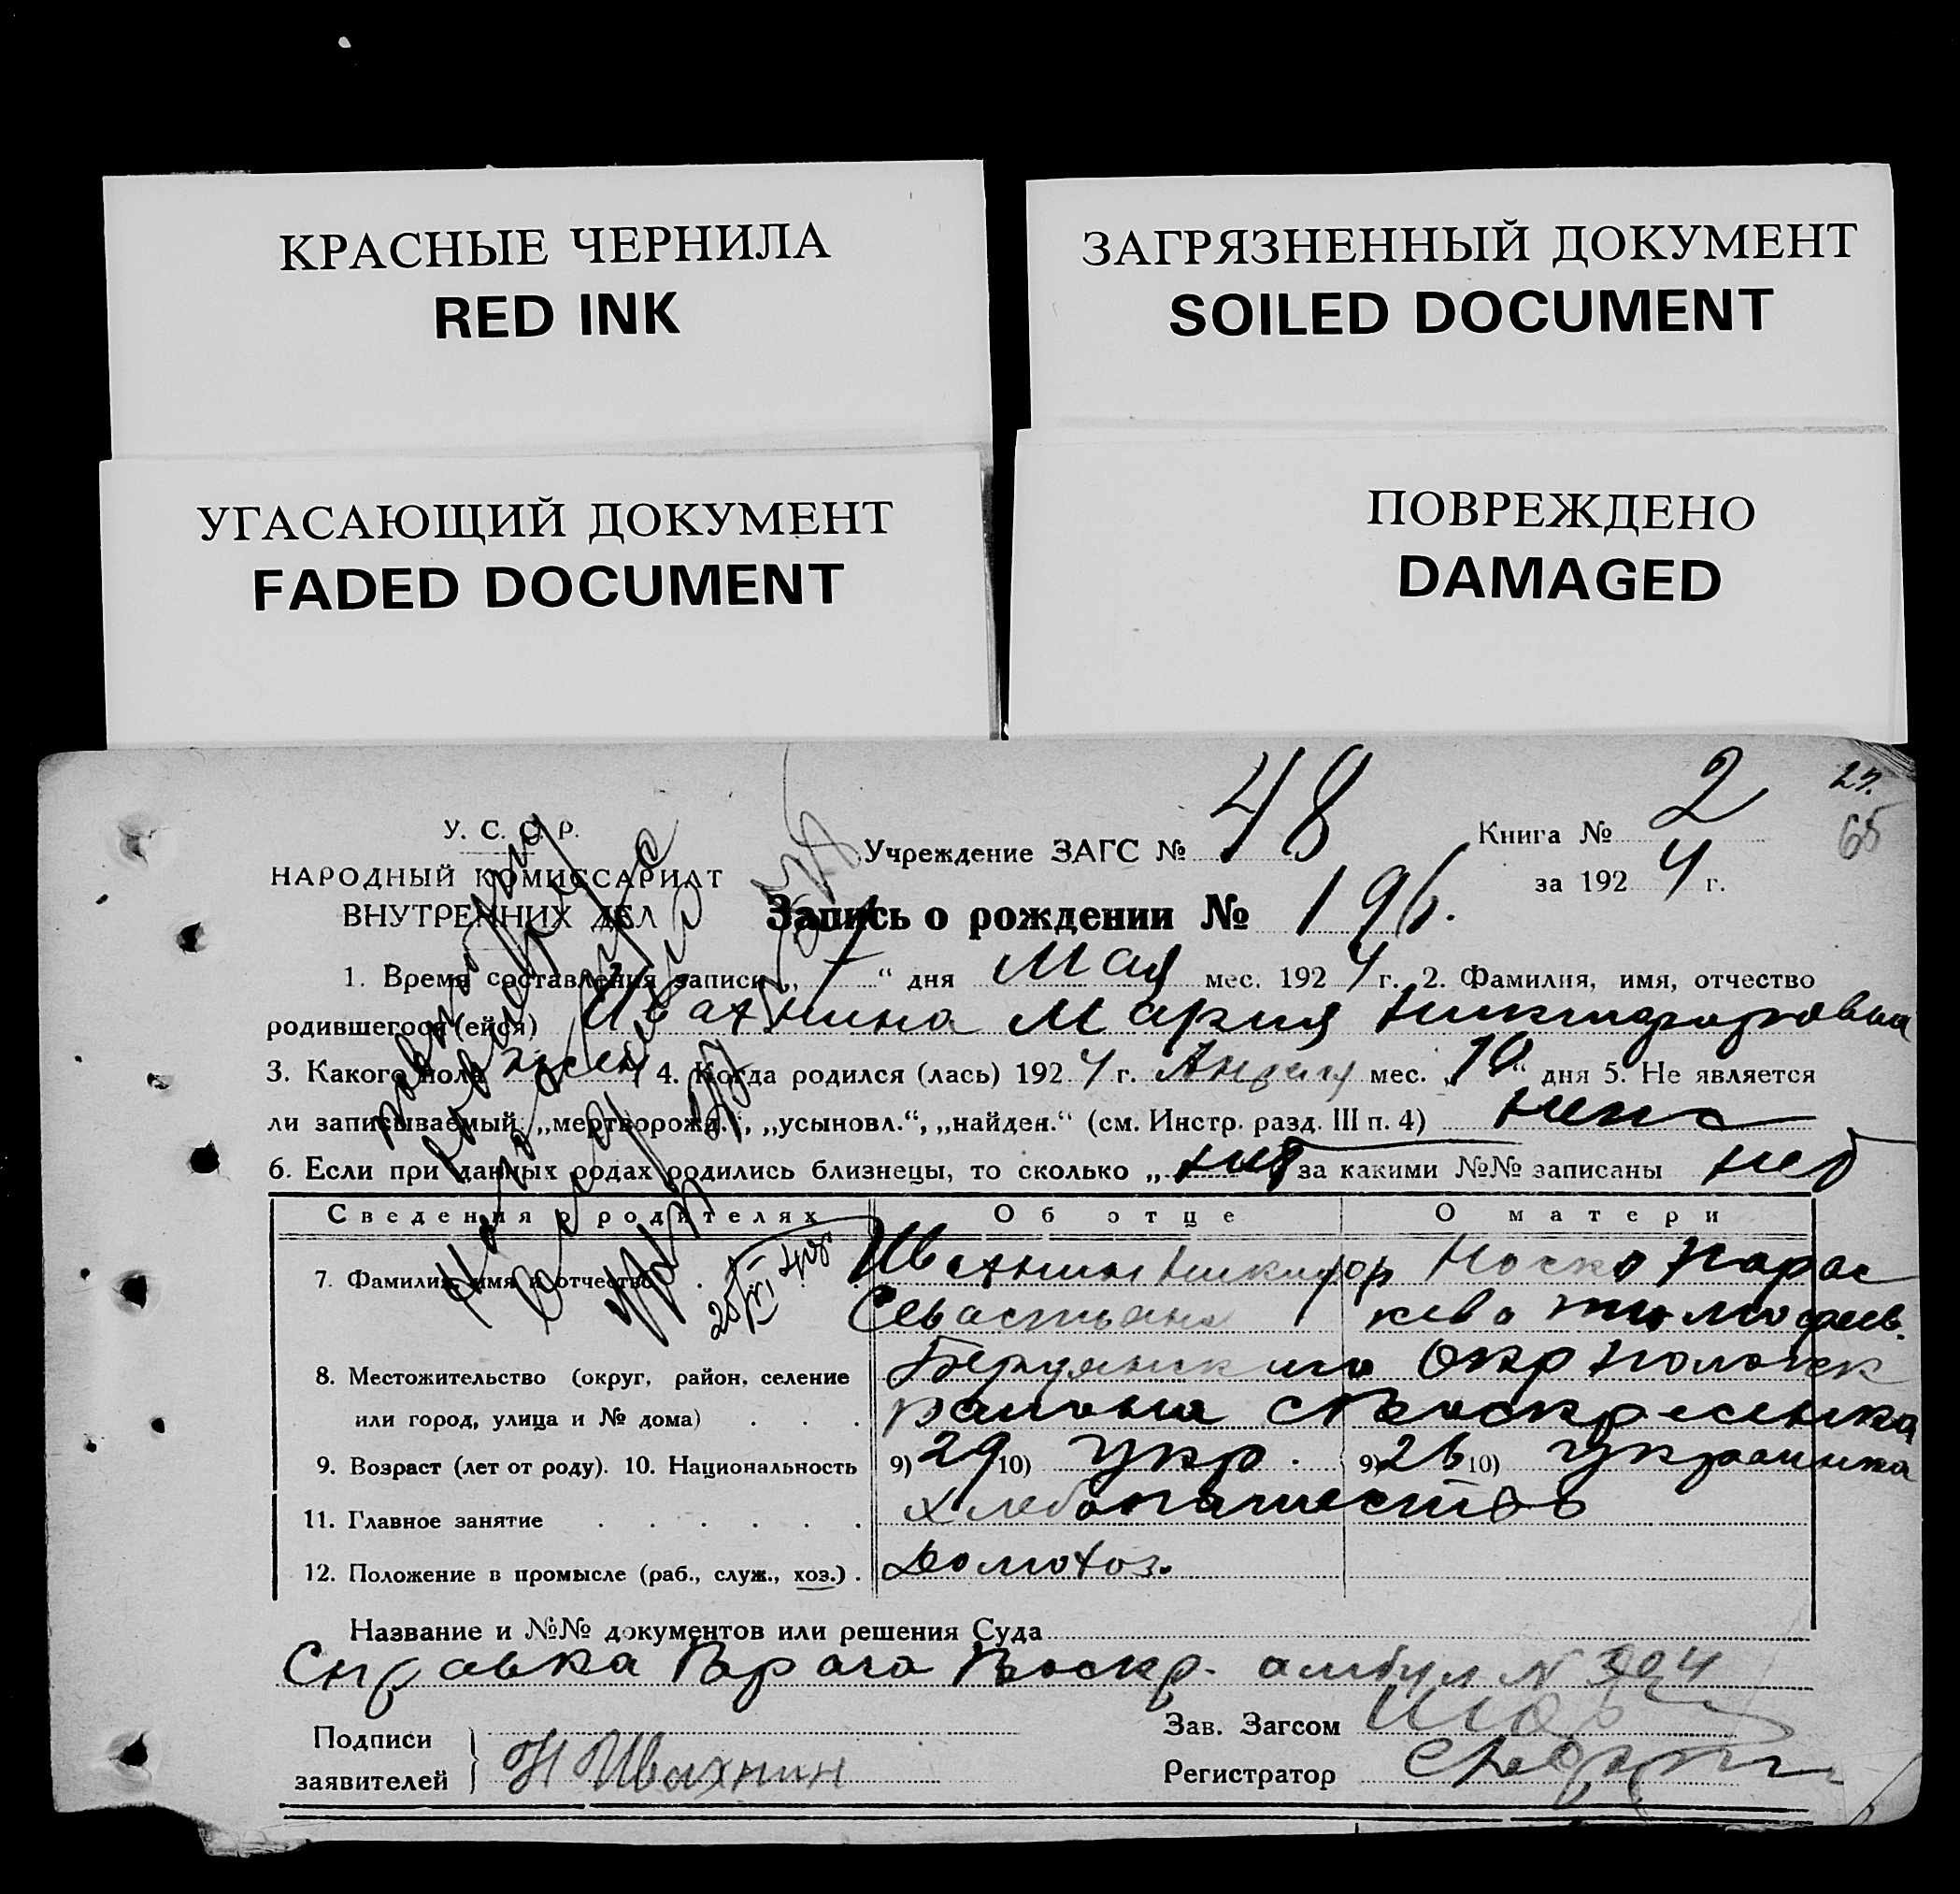 КРАСНЫЕ ЧЕРНИЛА
RED INK
ЗАГРЯЗНЕННЫЙ ДОКУМЕНТ
SOILED DOCUMENT
УГАСАЮЩИЙ ДОКУМЕНТ
FADED DOCUMENT
ПОВРЕЖДЕНО
DAMAGED
27.
65
У. С. С. Р.
НАРОДНЫЙ КОМИССАРИАТ
ВНУТРЕННИХ ДЕЛ
Учреждение ЗАГС № 48
Книга № 2
за 1924 г.
Запись о рождении № 196.
1. Время составления записи „ 7 “ дня Мая мес. 1924 г. 2. Фамилия, имя, отчество
родившегося (ейся) Ивахнина Мария Никифоровна
3. Какого пола женск 4. Когда родился (лась) 1924 г. Апреля мес. „10“ дня 5. Не является
ли записываемый „мертворожд.“, „усыновл.“, „найден.“ (см. Инстр. разд. III п. 4)
6. Если при данных родах родились близнецы, то сколько „ нет за какими №№ записаны нет
Сведения о родителях Об отце О матери
7. Фамилия, имя и отчество Ивахнин Никифор Носко Парас
Севастьянов кева Тимофеев.
8. Местожительство (округ, район, селение Бердянского Окр Пологск
или город, улица и № дома) района с Воскресенка
9. Возраст (лет от роду). 10. Национальность 9) 29 10) Укр. 9) 26 10) Украинка
11. Главное занятие хлебопашество
12. Положение в промысле (раб., служ., хоз.) Домохоз.
Название и №№ документов или решения Суда
Справка Врача Воскр. амбул N
Подписи
заявителей
Н Ивахнин
Зав. Загсом
Регистратор